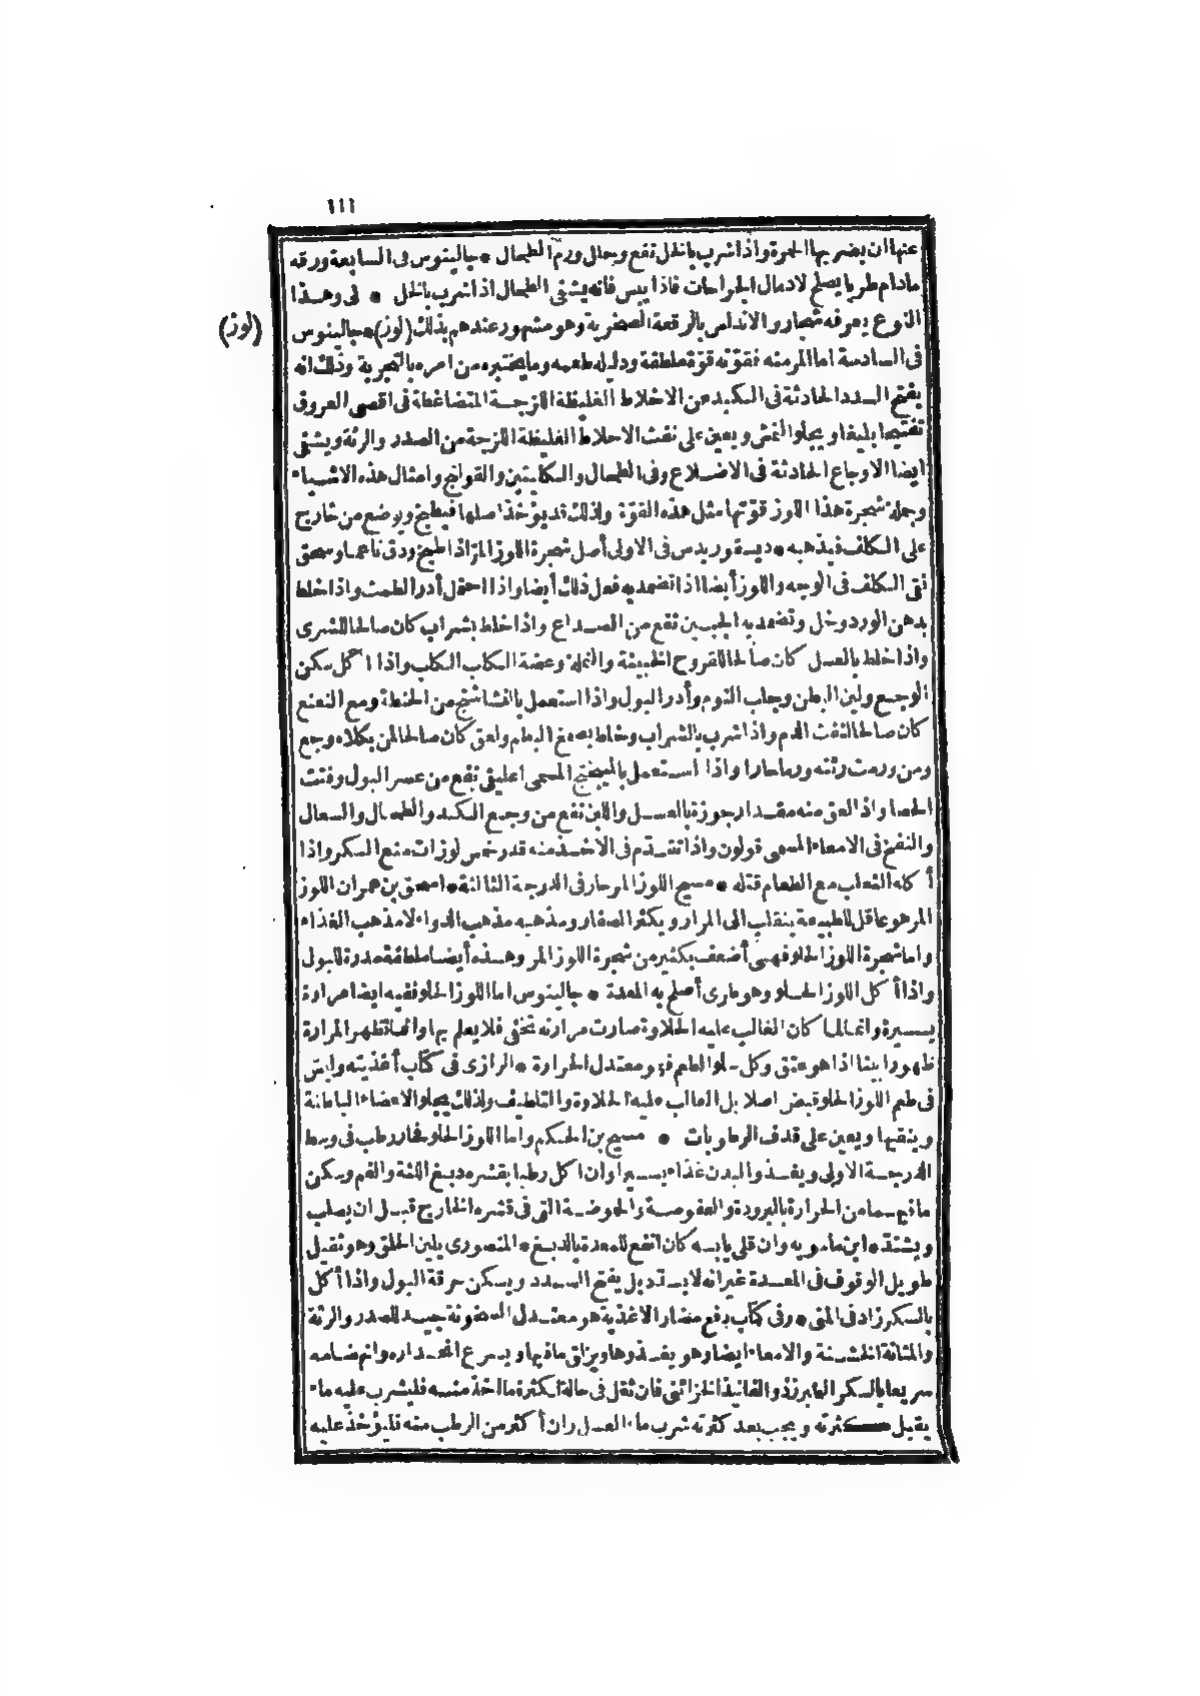 ١١١
عنها ان يضر بها الحمرة واذا شرب بالخل نفع وحلل ورم الطحال * جالينوس فى السابعة ورقه
مادام طريا يصلح لادمال الجراحات فاذا يبس فانه يشفى الطحال اذا شرب بالخل * لى وهذا
النوع يعرفه شجار و الاندلس بالرقعة الصخرية وهو مشهور عندهم بذلك (لوز) * جالينوس
(لوز)
فى السادسة اما المر منه فقوته قوة ملطفة ودليله طعمه وما يختبره من امره بالتجربة وذلك انه
يفتح السدد الحادثة فى الكبد عن الاخلاط الغليظة اللزجة المتضاغطة فى اقصى العروق
تفتيحا بليغا ويجلو النمش و يعين على نفث الاخلاط الغليظة اللزجة من الصدر والرئة ويشفى
ايضا الاوجاع الحادثة فى الاضلاع وفى الطحال والكليتين والقولنج وامثال هذه الاشياء
وجملة شجرة هذا اللوز قوتها مثل هذه القوة ولذلك قد يؤخذ اصلها فيطبخ ويوضع من خارج
على الكلف فيذهبه * ديسقوريدس فى الاولى أصل شجرة اللوز المر اذا طبخ ودق ناعما وسحق
نقى الكلف فى الوجه واللوز أيضا اذا تضمد به فعل ذلك أيضا واذا احتمل أدر الطمث واذا خلط
بدهن الورد وخل وتضمد به الجبين نفع من الصداع واذا خلط بشراب كان صالحا للشرى
واذا خلط بالعسل كان صالحا للقروح الخبيثة والنملة وعضة الكلب الكلب واذا اكل سكن
الوجع ولين البطن وجلب النوم وأدر البول واذا استعمل بالنشاستج من الحنطة ومع النعنع
كان صالحا لنفث الدم واذا شرب بالشراب وخلط بصمغ البطم ولعق كان صالحا لمن بكلاه وجع
ومن ورمت رئته ورما حارا واذا استعمل بالميبختج المسمى اغليقى نفع من عسر البول وفتت
الحصا واذا لعق منه مقدار جوزة بالعسل واللبن نفع من وجع الكبد والطحال والسعال
والنفخ فى الامعاء المسمى قولون واذا تقدم فى الاخذ منه قدر خمس لوزات منع السكر واذا
أكله الثعلب مع الطعام قتله * مسيح اللوز المر حار فى الدرجة الثالثة * اسحق بن عمران اللوز
المر هو عاقل للطبيعة ينقلب الى المرار ويكثر الصفار ومذهبه مذهب الدواء لا مذهب الغذاء
واما شجرة اللوز الحلو فهى أضعف بكثير من شجرة اللوز المر وهذه أيضا ملطفة مدرة للبول
واذا أكل اللوز الحلو وهو طرى أصلح بلة المعدة * جالينوس اما اللوز الحلو ففيه ايضا مرارة
يسيرة وانما لما كان الغالب عليه الحلاوة صارت مرارته تخفى فلا يعلم بها وانما تظهر المرارة
ظهورا بينا اذا هو عتق وكل حلو الطعم فهو معتدل الحرارة * الرازى فى كتاب أغذيته وليس
فى طعم اللوز الحلو قبض اصلا بل الغالب عليه الحلاوة والتلطيف ولذلك يجلو الاعضاء الباطنة
وينقيها ويعين على قذف الرطوبات * مسيح بن الحكم واما اللوز الحلو فحار رطب فى وسط
الدرجة الاولى ويغذو البدن غذاء يسيرا وان اكل رطبا بقشره دبغ اللثة والفم وسكن
ما فيهما من الحرارة بالبرودة والعفوصة والحموضة التى فى قشره الخارج قبل ان يصلب
ويشتد * ابن ماسويه وان قلى يابسه كان انفع للمعدة بالدبغ * المنصورى يلين الحلق وهو ثقيل
طويل الوقوف فى المعدة غير انه لا يسدد بل يفتح السدد ويسكن حرقة البول واذا أكل
بالسكر زاد فى المنى * وفى كتاب دفع مضار الاغذية هو معتدل السخونة جيد للصدر والرئة
والمثانة الخشنة والامعاء ايضا وهو يغذوها ويزلق ما فيها ويسرع انحداره وانهضامه
سريعا بالسكر الطبرزذ والفانيذ الخزائنى فان ثقل فى حالة لكثرة ما اخذ منه فليشرب عليه ماء
يقبل كثرته ويجب بعد كثرته شرب ماء العسل وان أكثر من الرطب منه فليؤخذ عليه